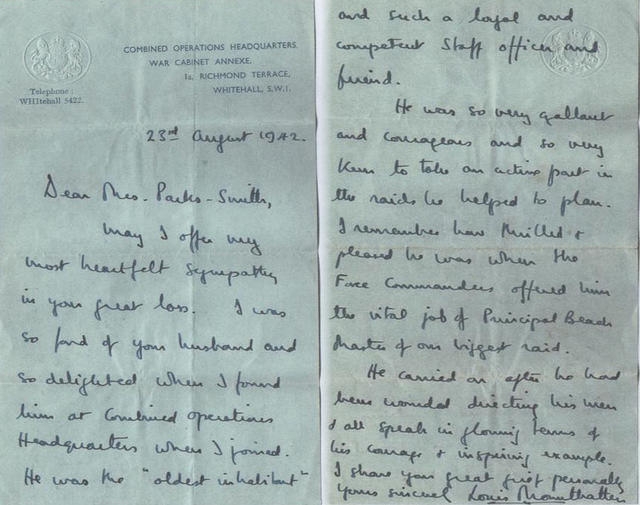 COMBINED OPERATIONS HEADQUARTERS.
WAR CABINET ANNEXE,
1a, RICHMOND TERRACE,
WHITEHALL, S.W.1.
Telephone :
WHItehall 5422.
23rd August 1942.
Dear Mrs. Parks-Smith,
May I offer my
most heartfelt sympathy
in your great loss. I was
so fond of your husband and
so delighted when I found
him at Combined Operations
Headquarters when I joined.
He was the "oldest inhabitant"
and such a loyal and
competent Staff officer and
friend.
He was so very gallant
and courageous and so very
keen to take an active part in
the raids he helped to plan.
I remember how thrilled &
pleased he was when the
Force Commanders offered him
the vital job of Principal Beach
Master of our biggest raid.
He carried on after he had
been wounded directing his men
& all speak in glowing terms of
his courage & inspiring example.
I share your great grief personally
Yours sincerely Louis Mountbatten